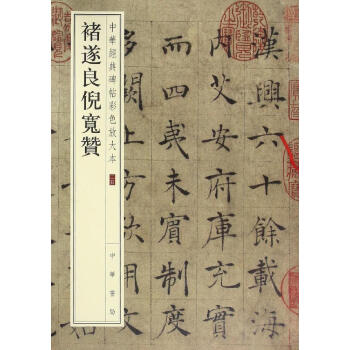 中華經典碑帖彩色放大本
褚遂良倪寬贊
中華書局
漢興六十餘載海
內艾安府庫
而四夷未賓制度
多闕上方欲用